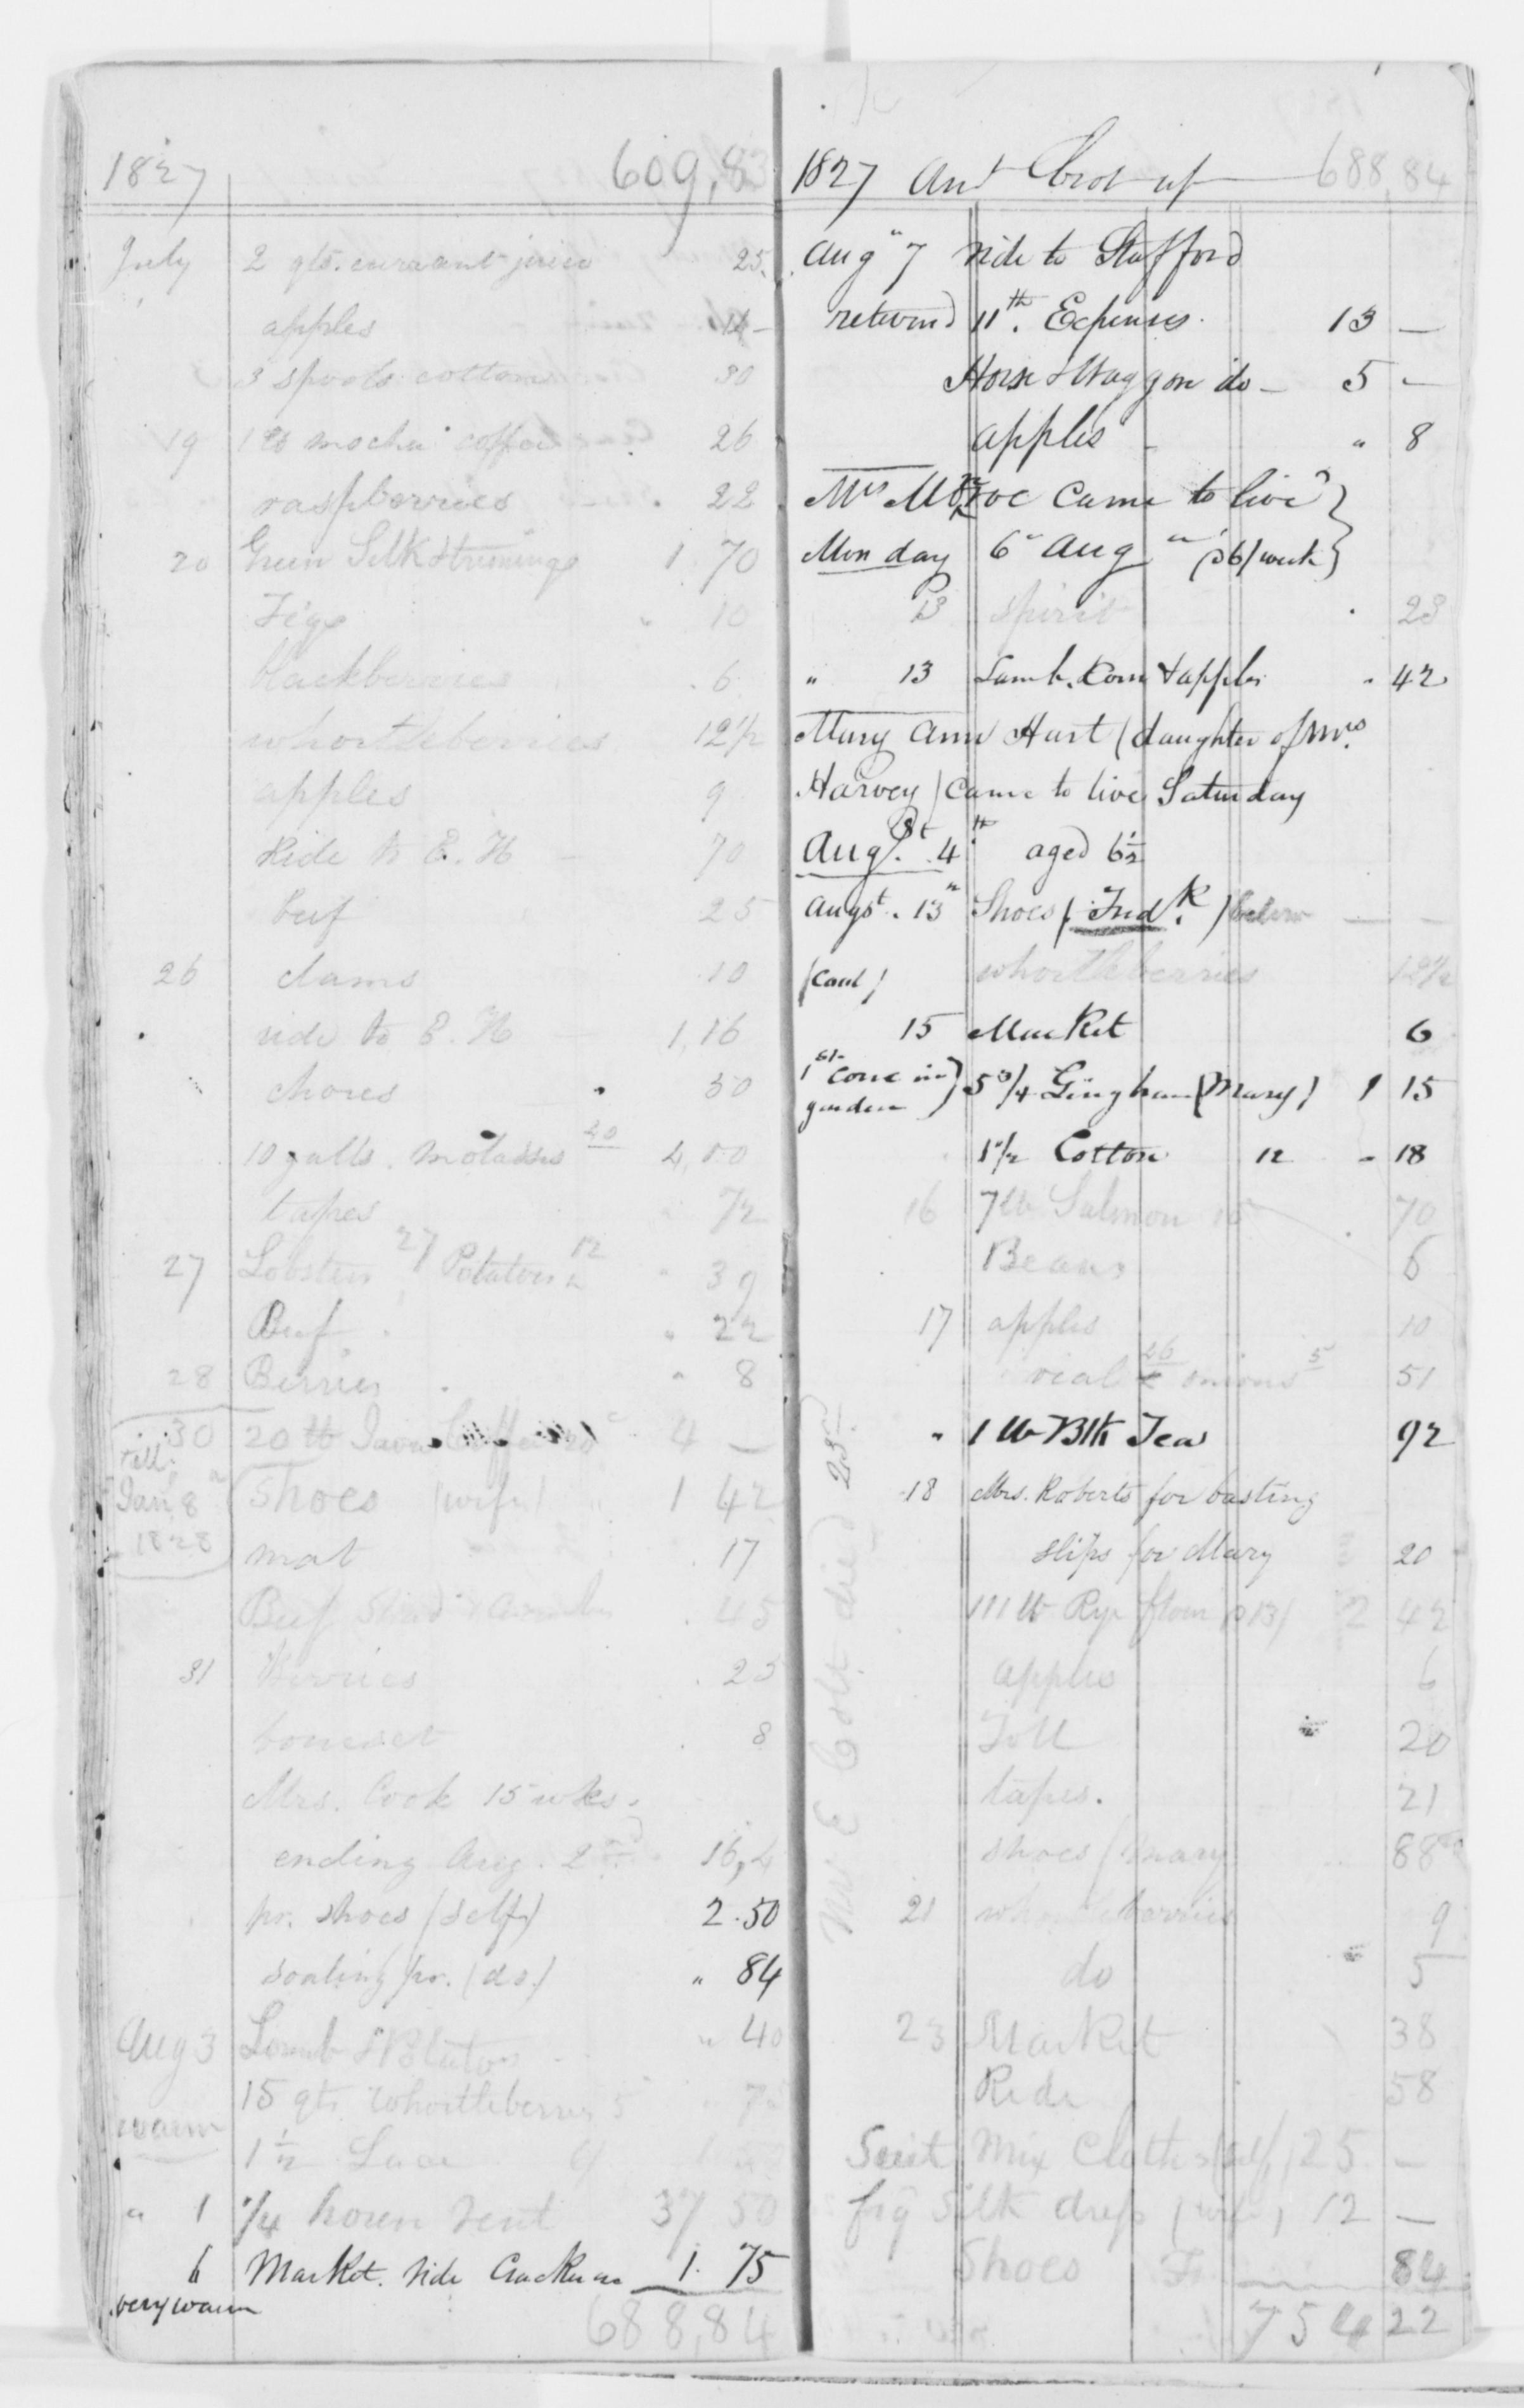 1827 609,83
July 2 qts. currant juice 25
apples 11
3 spools cotton 30
19 1 lb mocha coffee 26
raspberries 22
20 Green Silk & trimings 1 70
Figs " 10
blackberries 6
whortleberries 12 1/2
apples 9
Ride to E. H 70
beef 25
26 clams 10
ride to E. H 1,16
chores 50
10 galls. molasses 40 4,00
tapes 72
27 Lobsters 27 Potatoes 12 " 39
Beef " 22
28 Berries " 8
30 20 lb Java Coffee 20 4 —
till Jan 8 1828
Shoes (wife) 1 42
mat 17
Beef 45
31 Berries 25
boneset 8
Mrs. Cook 15 wks.
ending Aug. 2nd 16,4
pr. shoes (self) 2.50
soaling pr. (do.) " 84
Aug 3 Lamb & Potatoes " 40
15 qts Whortleberries 5 75
warm
1 1/2 Lace
" 1 1/4 house rent 37 50
6 Market. ride Crackers 1. 75
very warm
688,84
1827 amt brot up 688,84
Aug " 7 ride to Stafford
returnd 11th. Expenses. 13 —
Horse & Waggon do — 5 —
apples " 8
Mrs Monroe came to live
Monday 6" Aug (@6/week)
13 spirit 23
" 13 Lamb. Corn & apples " 42
Mary Ann Hart (daughter of Mrs.
Harvey) came to live Saturday
Augst. 4th aged 6 1/2
Augst. 13" Shoes (Fredk.) below — —
whortleberries 12 1/2
(cool)
15 Market 6
1st corn in garden) 5 3/4 Gingham (Mary) 1 15
1 1/2 Cotton 12 " 18
16 7 lb Salmon 10 70
Beans 6
17 apples 10
veal 46 onions 5 51
" 1 lb Blk Tea 92
18 Mrs. Roberts for basting
slips for Mary 20
111 lb Rye flour 2 42
apples 6
Toll 20
tapes. 21
shoes (Mary 88
21 whortleberries 9
do 5
23 Market 38
Ride 58
Suit Mix Cloths (self) 25 —
fig Silk dress (wife) 12 —
Shoes Fr 84
754 22
Mr E Colt died 23d